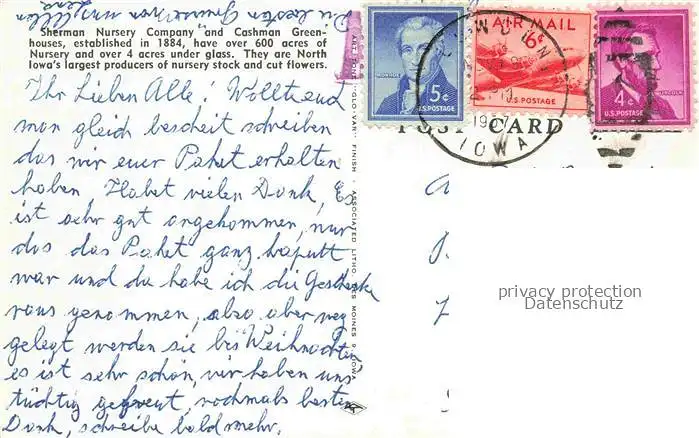 Die besten Grüsse von uns allen
Sherman Nursery Company and Cashman Green-
houses, established in 1884, have over 600 acres of
Nursery and over 4 acres under glass. They are North
Iowa's largest producers of nursery stock and cut flowers.
Ihr Lieben Alle. Wollt end
man gleich bescheit schreiben
das wir euer Paket erhalten
haben, Habet vielen Dank, Es
ist sehr gut angekommen, nur
das das Paket ganz kaputt
war und du habe ich die Geschenke
raus genommen, also aber weg
gelegt werden sie bis Weihnachten
es ist sehr schön, wir haben uns
tüchtig gefreut, nochmals besten
Dank, schreibe bald mehr.
"COLOR VAN" FINISH - ASSOCIATED LITHO. DES MOINES 9, IOWA
MONROE
5¢
U.S. POSTAGE
AIR MAIL
6¢
U.S. POSTAGE
4¢
LINCOLN
U.S. POSTAGE
IOWA
POST CARD
privacy protection
Datenschutz